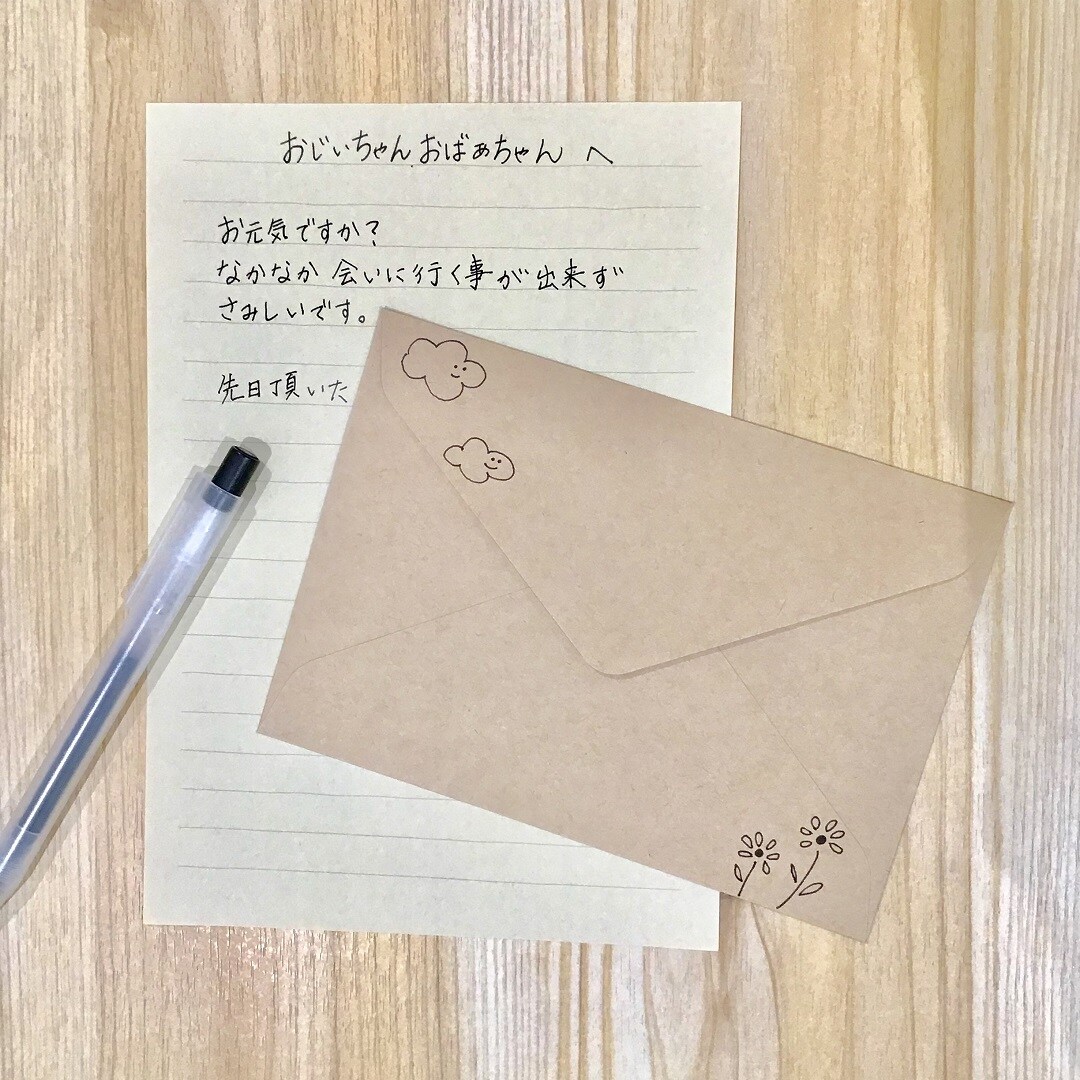 おじいちゃん おばぁちゃん へ
お元気ですか？
なかなか 会いに行く事が出来ず
さみしいです。
先日頂いた